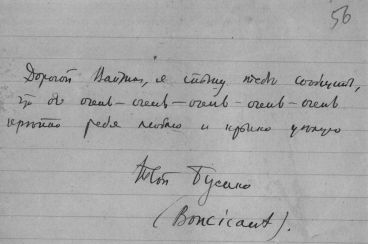 56
Дорогой я спешу тебе сообщить,
что очень-очень-очень-очень-очень
тебя люблю и крепко целую
Твой Бусико
(Boncicaut).